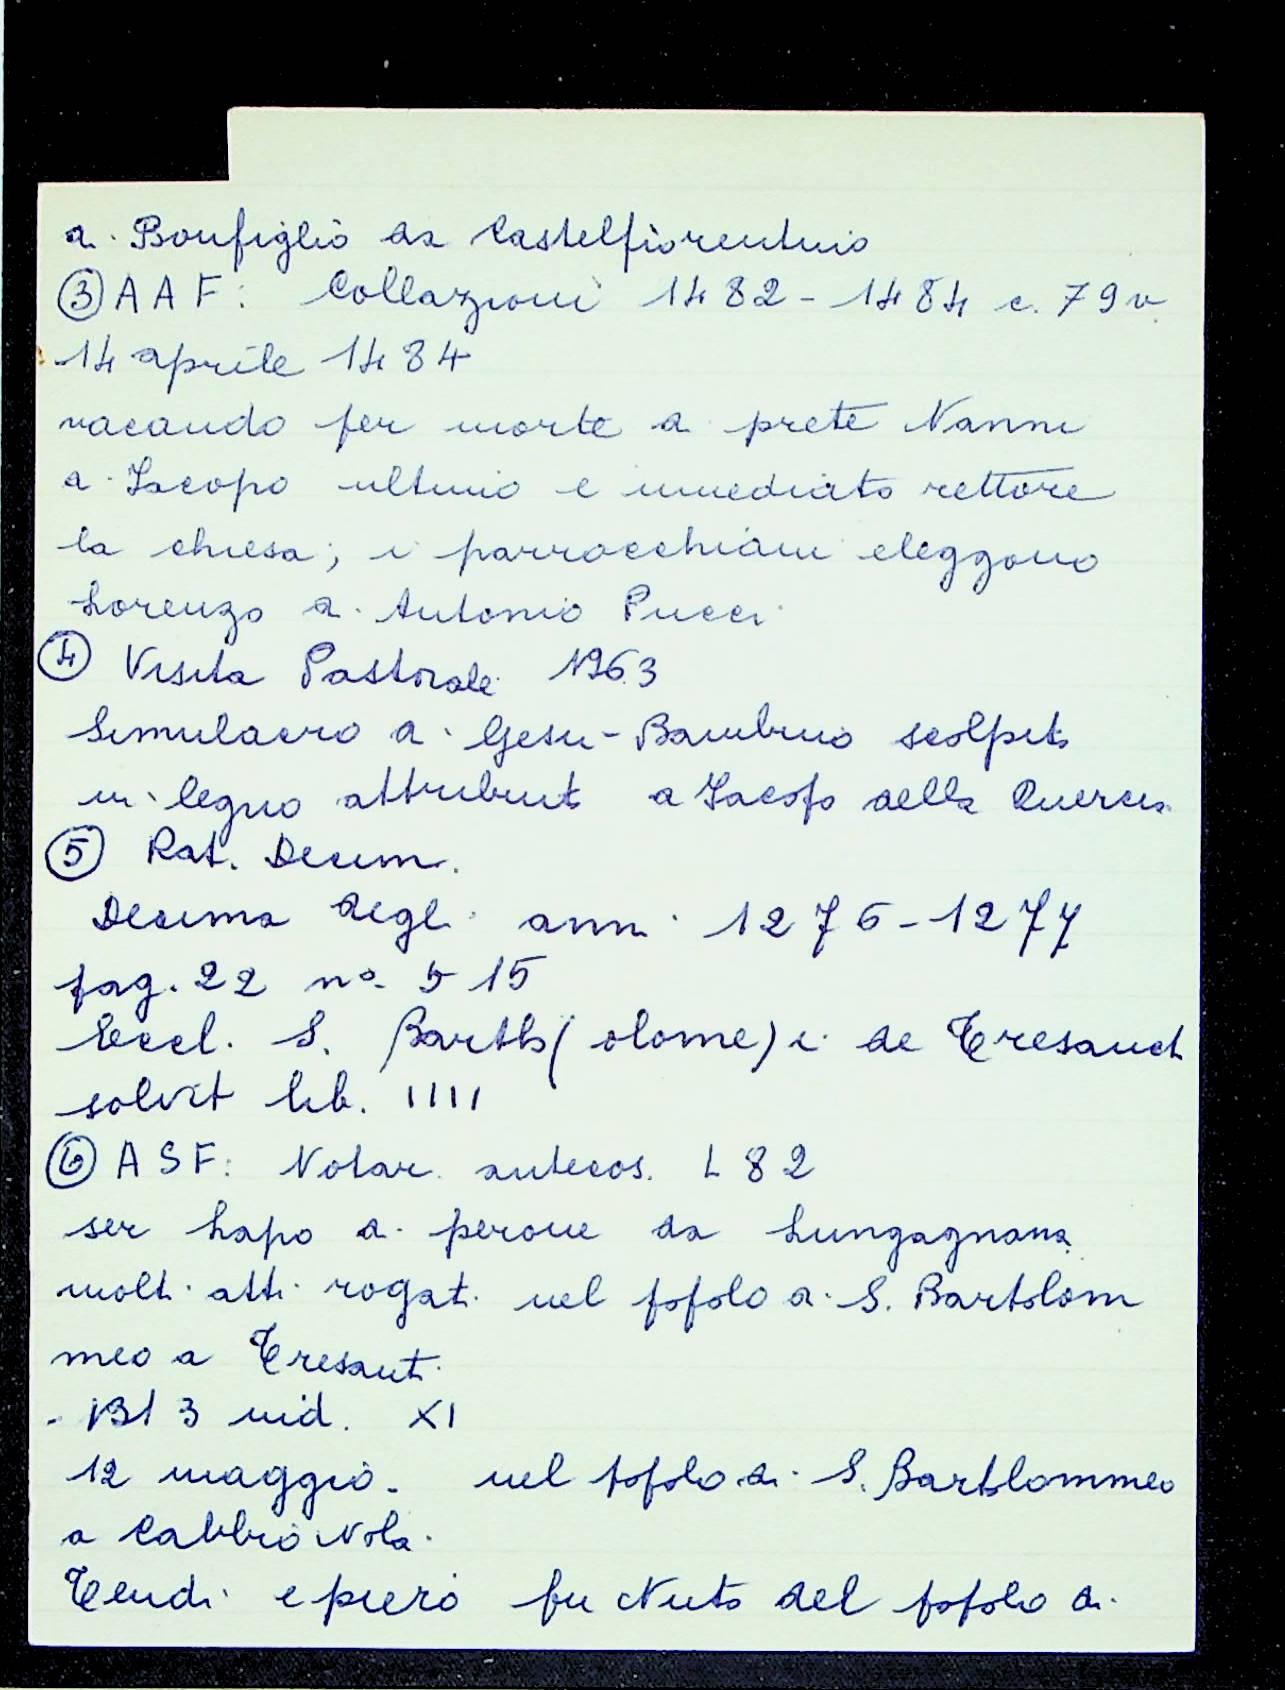 di Bonfiglio da Castelfiorentino
③ A A F: Collazioni 1482-1484 c. 79 v.
14 aprile 1484
vacando per morte di prete Nanni
di Iacopo ultimo e immediato rettore
la chiesa; i parrocchiani eleggono
Lorenzo di Antonio Pucci
④ Visita Pastorale 1963
Simulacro di Gesu-Bambino scolpito
in legno attribuito a Iacopo della Quercia
⑤ Rat. Decim.
Decima degli anni 1276-1277
pag. 22 nº 515
Eccl. S. Bartho(olome)i de Tresancti
solvit lib. IIII
⑥ A S F: Notar. antecos. L 82
ser Lapo di perone da Lungagnana
molti atti rogati nel popolo di S. Bartolom
meo a Tresanti
1313 ind. XI
12 maggio. nel popolo di S. Bartolommeo
a Cabbiavola
Cendi e piero fu Nuto del popolo di